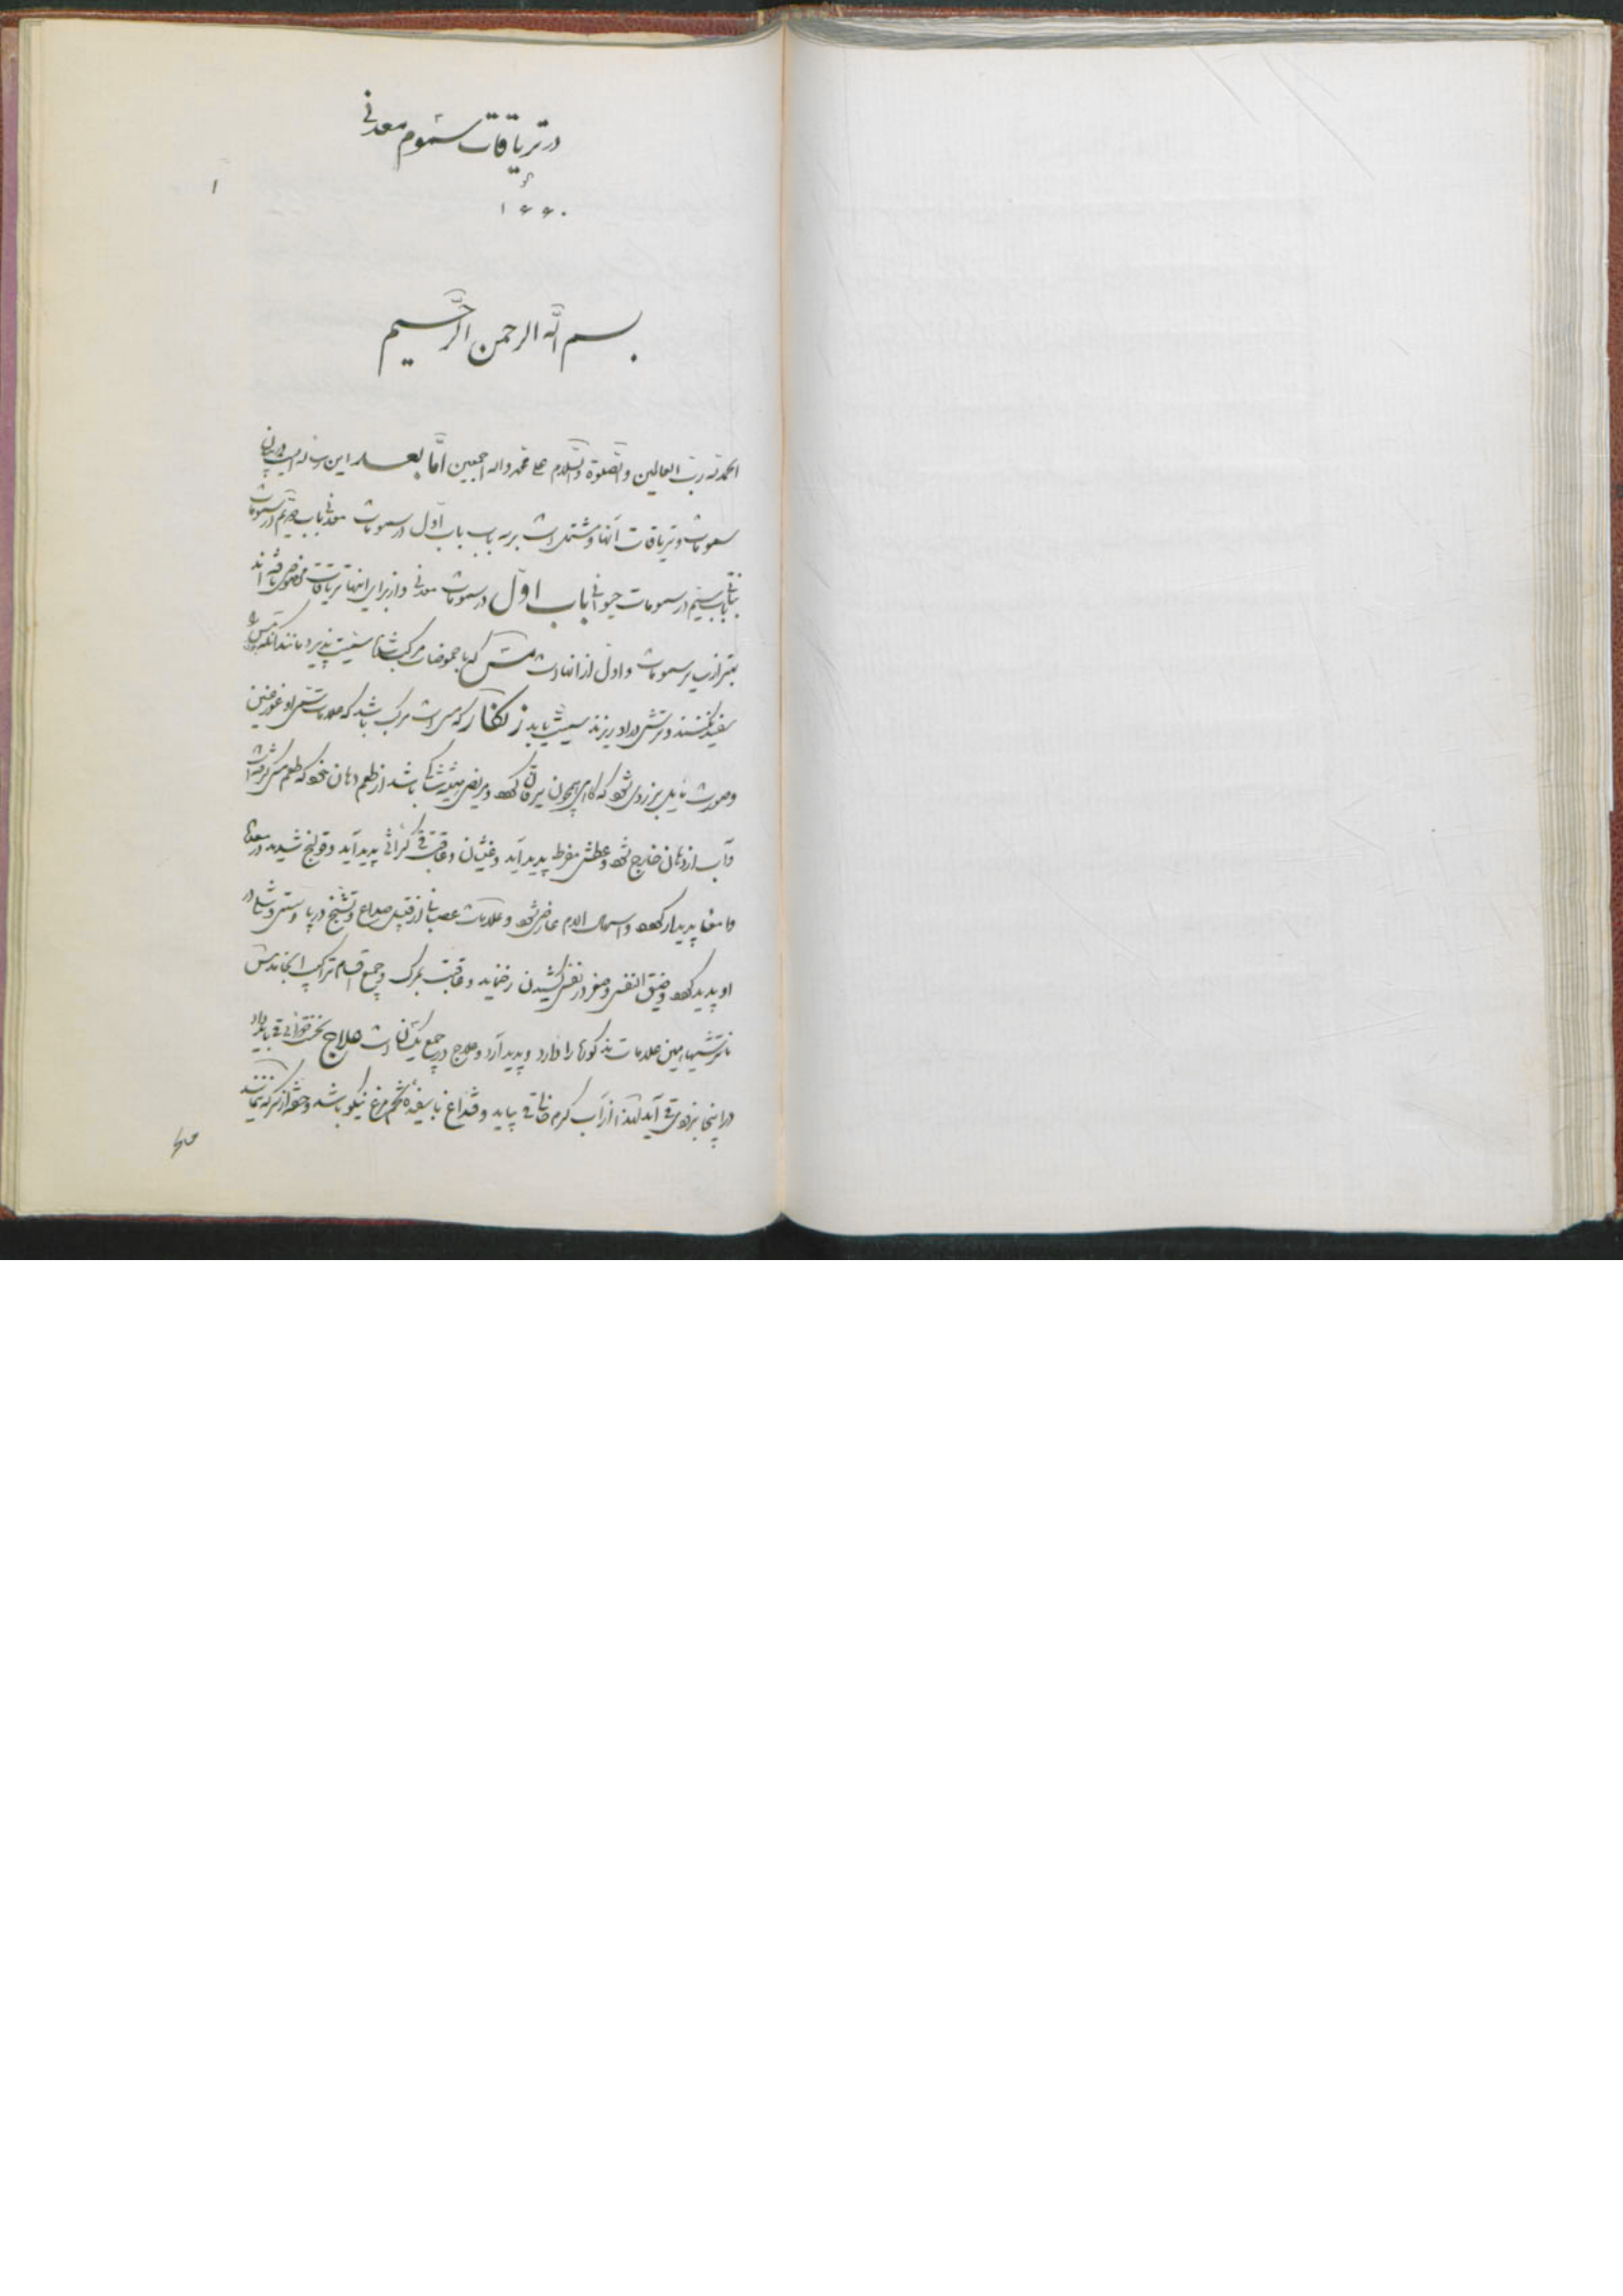 در تریاقات سموم معدنی
۱
۱۶۶۰
بسم الله الرحمن الرحیم
الحمد لله رب العالمین والصلوة والسلام علی محمد واله اجمعین اما بعد این رساله ایست در بیان
سمومات و تریاقات آنها و مشتمل است بر سه باب باب اول در سمومات معدنی باب دویم در سمومات
نباتی باب سیم در سمومات حیوانی باب اول در سمومات معدنی و از برای اینها تریاقات مخصوص یافته اند
بهتر از سایر سمومات و اول از انهاست مس که با حموضات مرکب شد سمیت پذیرد مانند آنکه
سفید نکنند و ترشی در او ریزند سمیت یابد زنگار که مس است مرکب باشد که علامات سمی او
وصورت مایل بزردی شود که گاهی همچون یرقان گردد و مریض همیشه شاکی باشد از طعم دهان بنحوی که طعم مس گرفته است
و آب از دهان خارج شود و عطش مفرط پدید آید و غثیان و عاقبت قی پدید آید و قولنج شدید در معده
و امعا پدیدار گردد و اسهال الدم عارض شود و علامات عصبانی از قبیل صداع و تشنج در پا و سستی در
او پدید گردد و ضیق النفس و در نفس کشیدن رخ نماید و عاقبت بمرگ و جمیع اقسام تراکیب انجامدش
با ترشیها همین علامات مذکوره را دارد و پدید آرد و علاج در جمیع یکسان است علاج نخست قی باید داد
در اینجا بزودی قی آید لهذا از آب گرم قی باید و با سفیده تخم مرغ نیکو باشد و حذر از سرکه نمایند